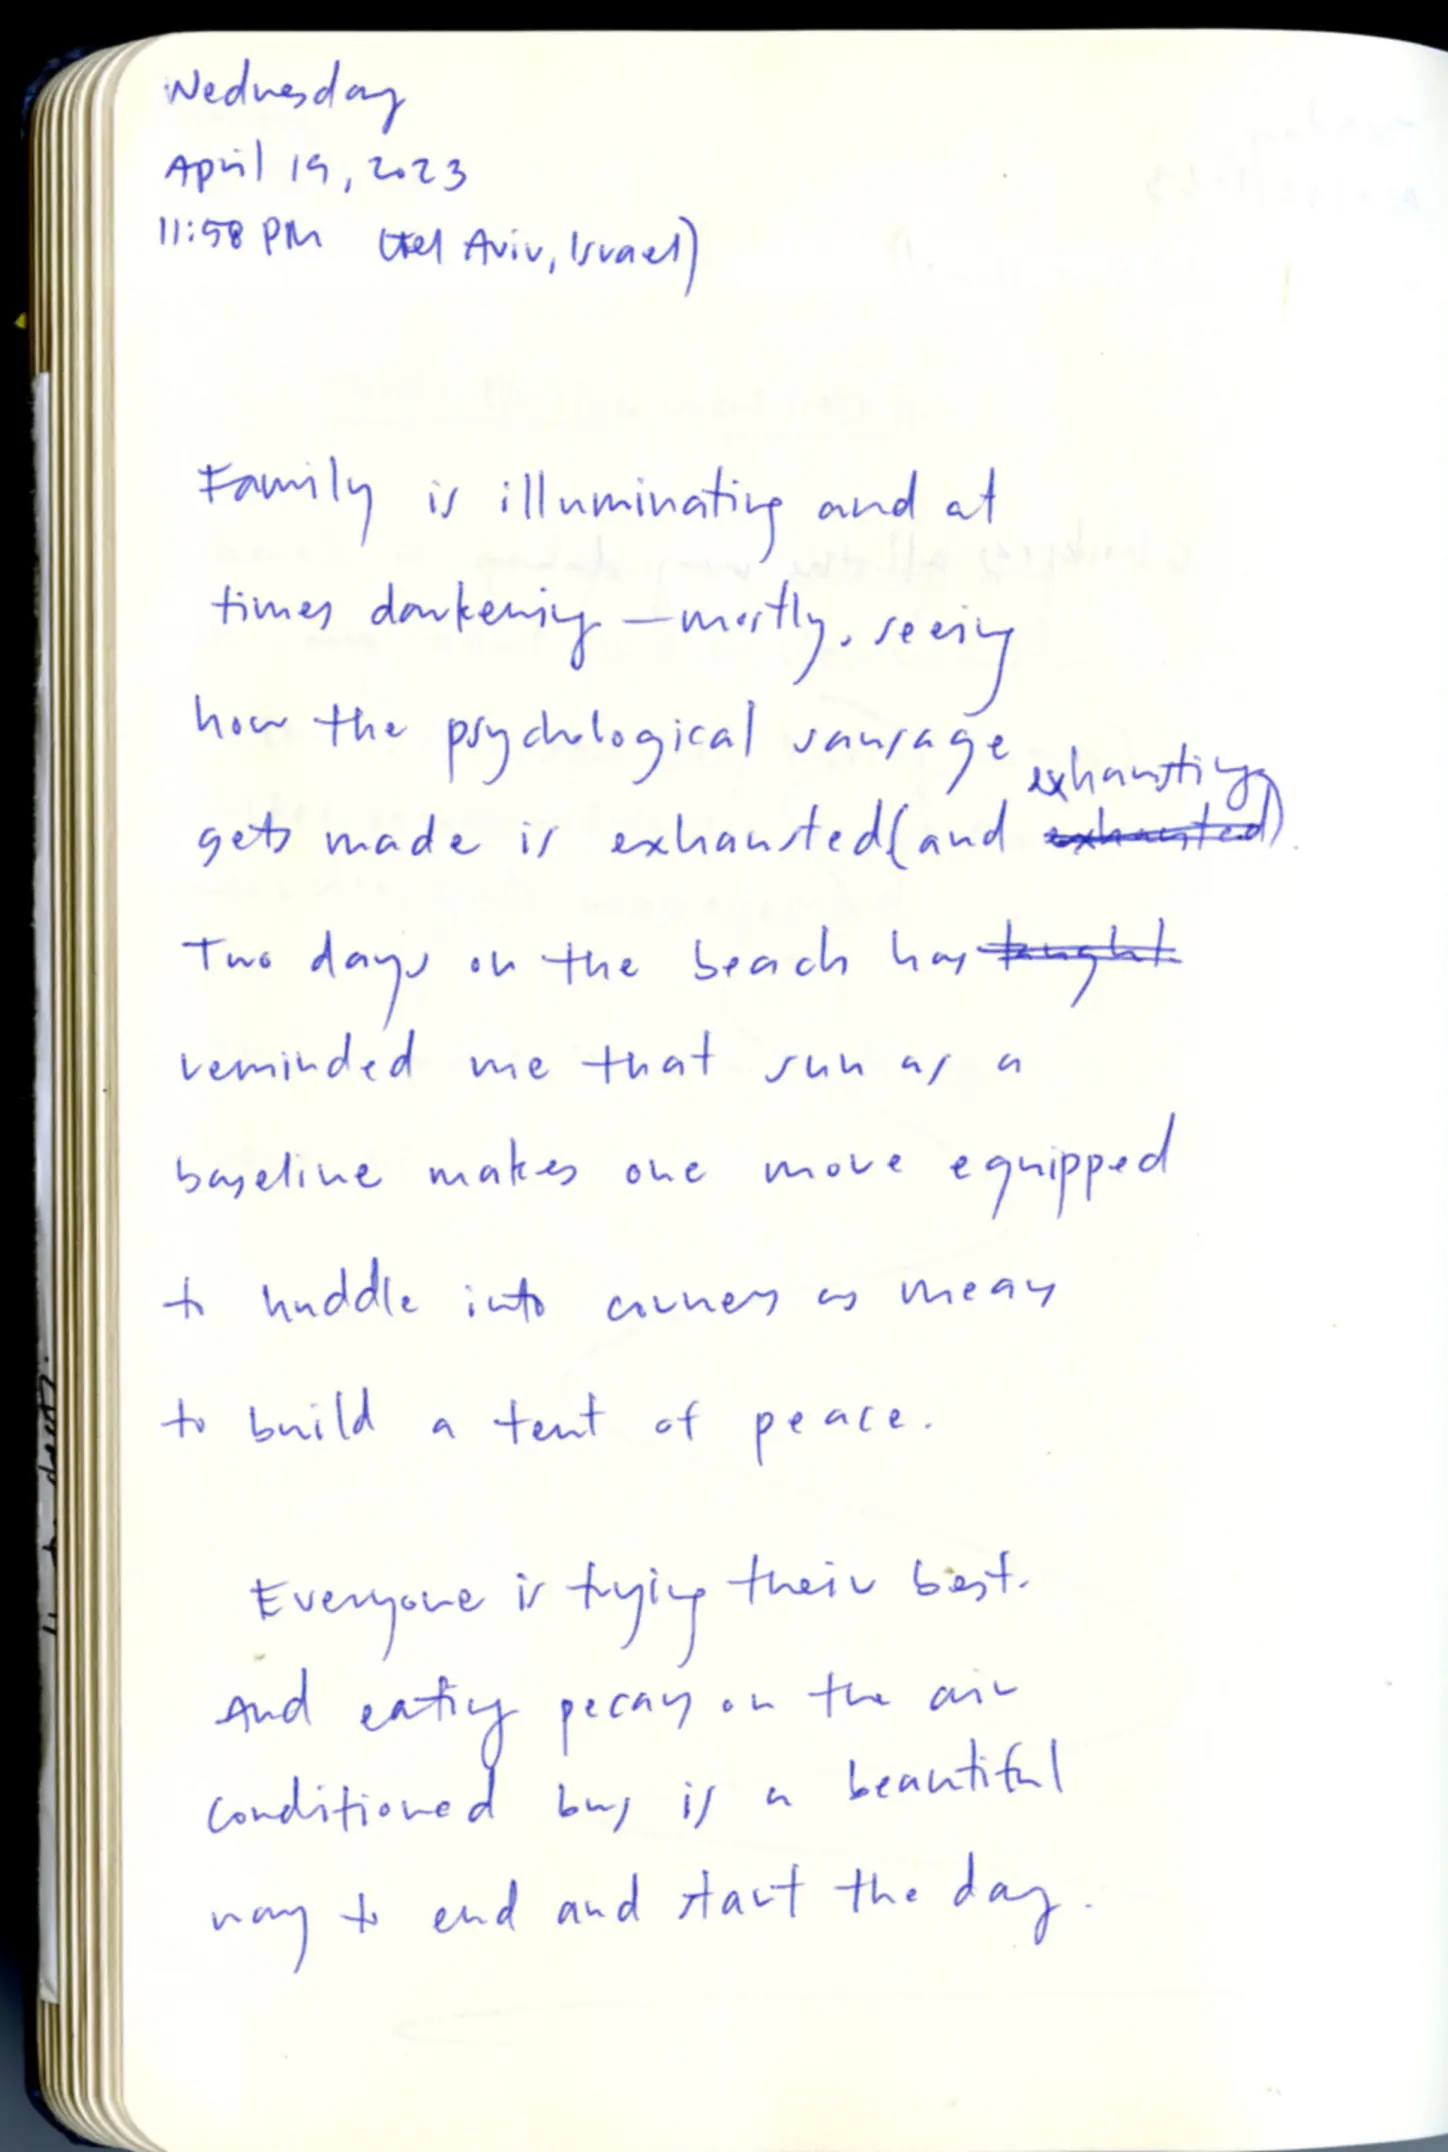 Wednesday
April 19, 2023
11:58 PM (Tel Aviv, Israel)
Family is illuminating and at
times darkening — mostly, seeing
how the psychological sausage
gets made is exhausted (and exhausting)
Two days on the beach has taught
reminded me that sun as a
baseline makes one more equipped
to huddle into corners as means
to build a tent of peace.
Everyone is trying their best.
And eating pecans on the air
conditioned bus is a beautiful
way to end and start the day.